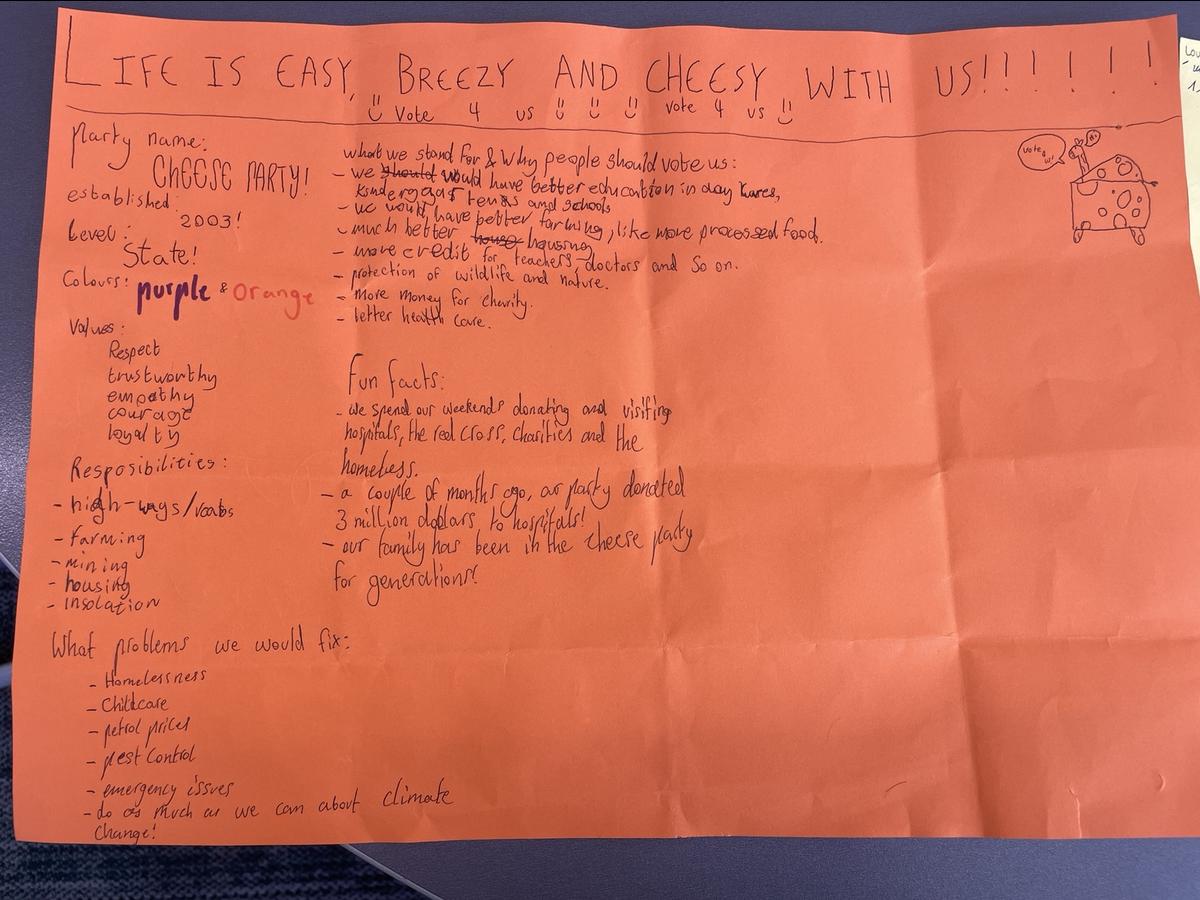 LIFE IS EASY, BREEZY AND CHEESY WITH US!!!!!!
Vote 4 us vote 4 us
Party name:
CHEESE PARTY!
established:
2003!
Level:
State!
Colours: purple & Orange
Values:
Respect
trustworthy
empathy
courage
loyalty
Resposibilities:
- high-ways/roabs
- farming
- mining
- housing
- insolation
What problems we would fix:
- Homelessness
- Childcare
- petrol prices
- pest control
- emergency issues
- do as much as we can about climate
change!
what we stand for & why people should vote us:
- we should would have better education in day kares,
kindergartens and schools
- we would have better farming, like more processed food.
- much better house housing
- more credit for teachers, doctors and so on.
- protection of wildlife and nature.
- more money for charity.
- better health care.
Fun facts:
- we spend our weekends donating and visiting
hospitals, the red cross, charities and the
homeless.
- a couple of months ago, our party donated
3 million dollars to hospitals!
- our family has been in the cheese party
for generations!
vote 4
us!